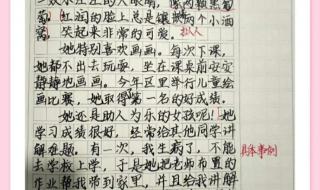 双水汪汪的大眼睛，像两颗黑葡
萄。红润的脸上总是镶嵌两个小酒
窝，笑起来非常的可爱。
拟人
她特别喜欢画画。每次下课，
她都不出去玩耍，坐在课桌前安安
静静地画画。今年区里举行儿童绘
画比赛，她取得第一名的好成绩。
她还是助人为乐的女孩呢！她
学习成绩很好，经常给其他同学讲
解难题。有一次，我生病了，不能
具体事例
去学校上学，于是她把老师布置的
作业帮我带到家里，并且给我讲解